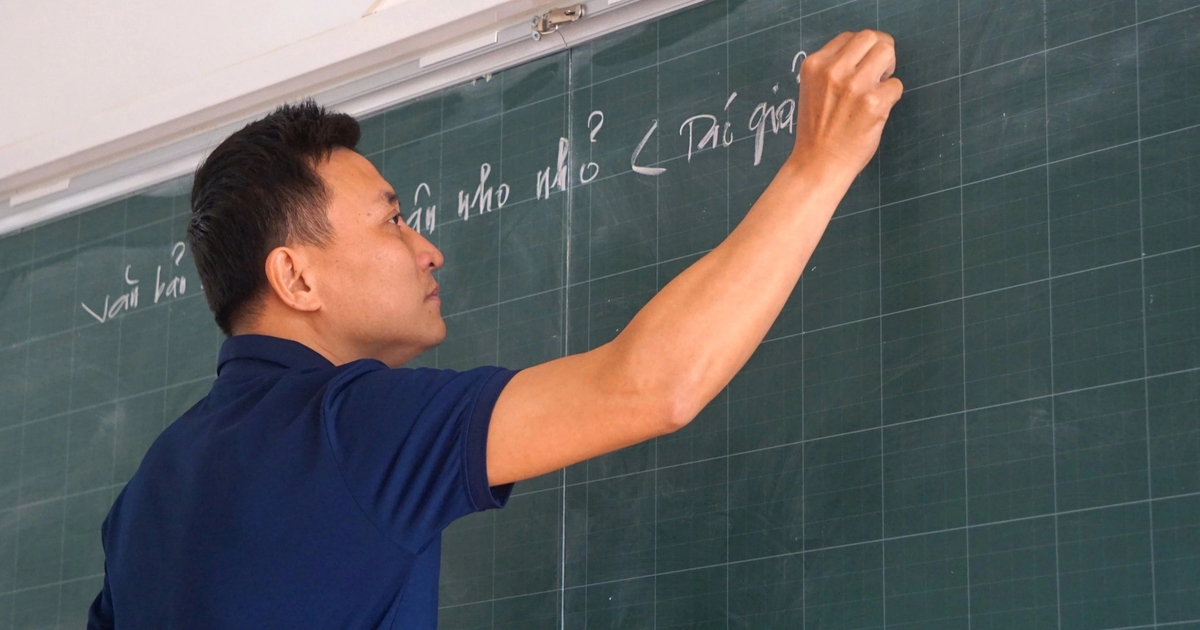 Văn bản ân nho nhỏ ( Tác giả